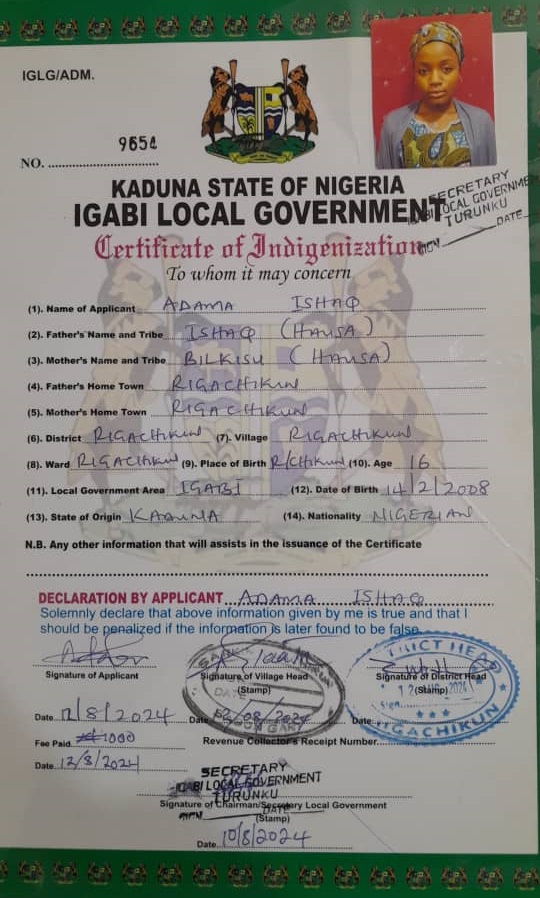 IGLG/ADM.
NO. 9654
KADUNA STATE OF NIGERIA
IGABI LOCAL GOVERNMENT
SECRETARY
LOCAL GOVERNME
TURUNKU
DATE
Certificate of Indigenization
To whom it may concern
(1). Name of Applicant ADAMA ISHAQ
(2). Father's Name and Tribe ISHAQ (HAUSA)
(3). Mother's Name and Tribe BILKISU (HAUSA)
(4). Father's Home Town RIGACHIKUN
(5). Mother's Home Town RIGACHIKUN
(6). District RIGACHIKUN (7). Village RIGACHIKUN
(8). Ward RIGACHIKUN (9). Place of Birth R/CHIKUN (10). Age 16
(11). Local Government Area IGABI (12). Date of Birth 14/2/2008
(13). State of Origin KADUNA (14). Nationality NIGERIAN
N.B. Any other information that will assists in the issuance of the Certificate
DECLARATION BY APPLICANT ADAMA ISHAQ
Solemnly declare that above information given by me is true and that I
should be penalized if the information is later found to be false.
Signature of Applicant Signature of Village Head Signature of District Head
(Stamp) (Stamp)
DATE
HEAD
12 2024
RIGACHIKUN
Date 12/8/2024 Date Date:
Fee Paid 1000 Revenue Collector's Receipt Number
Date 12/8/2024
SECRETARY
IGABI LOCAL GOVERNMENT
TURUNKU
DATE
Signature of Chairman/Secretary Local Government
(Stamp)
Date 10/8/2024